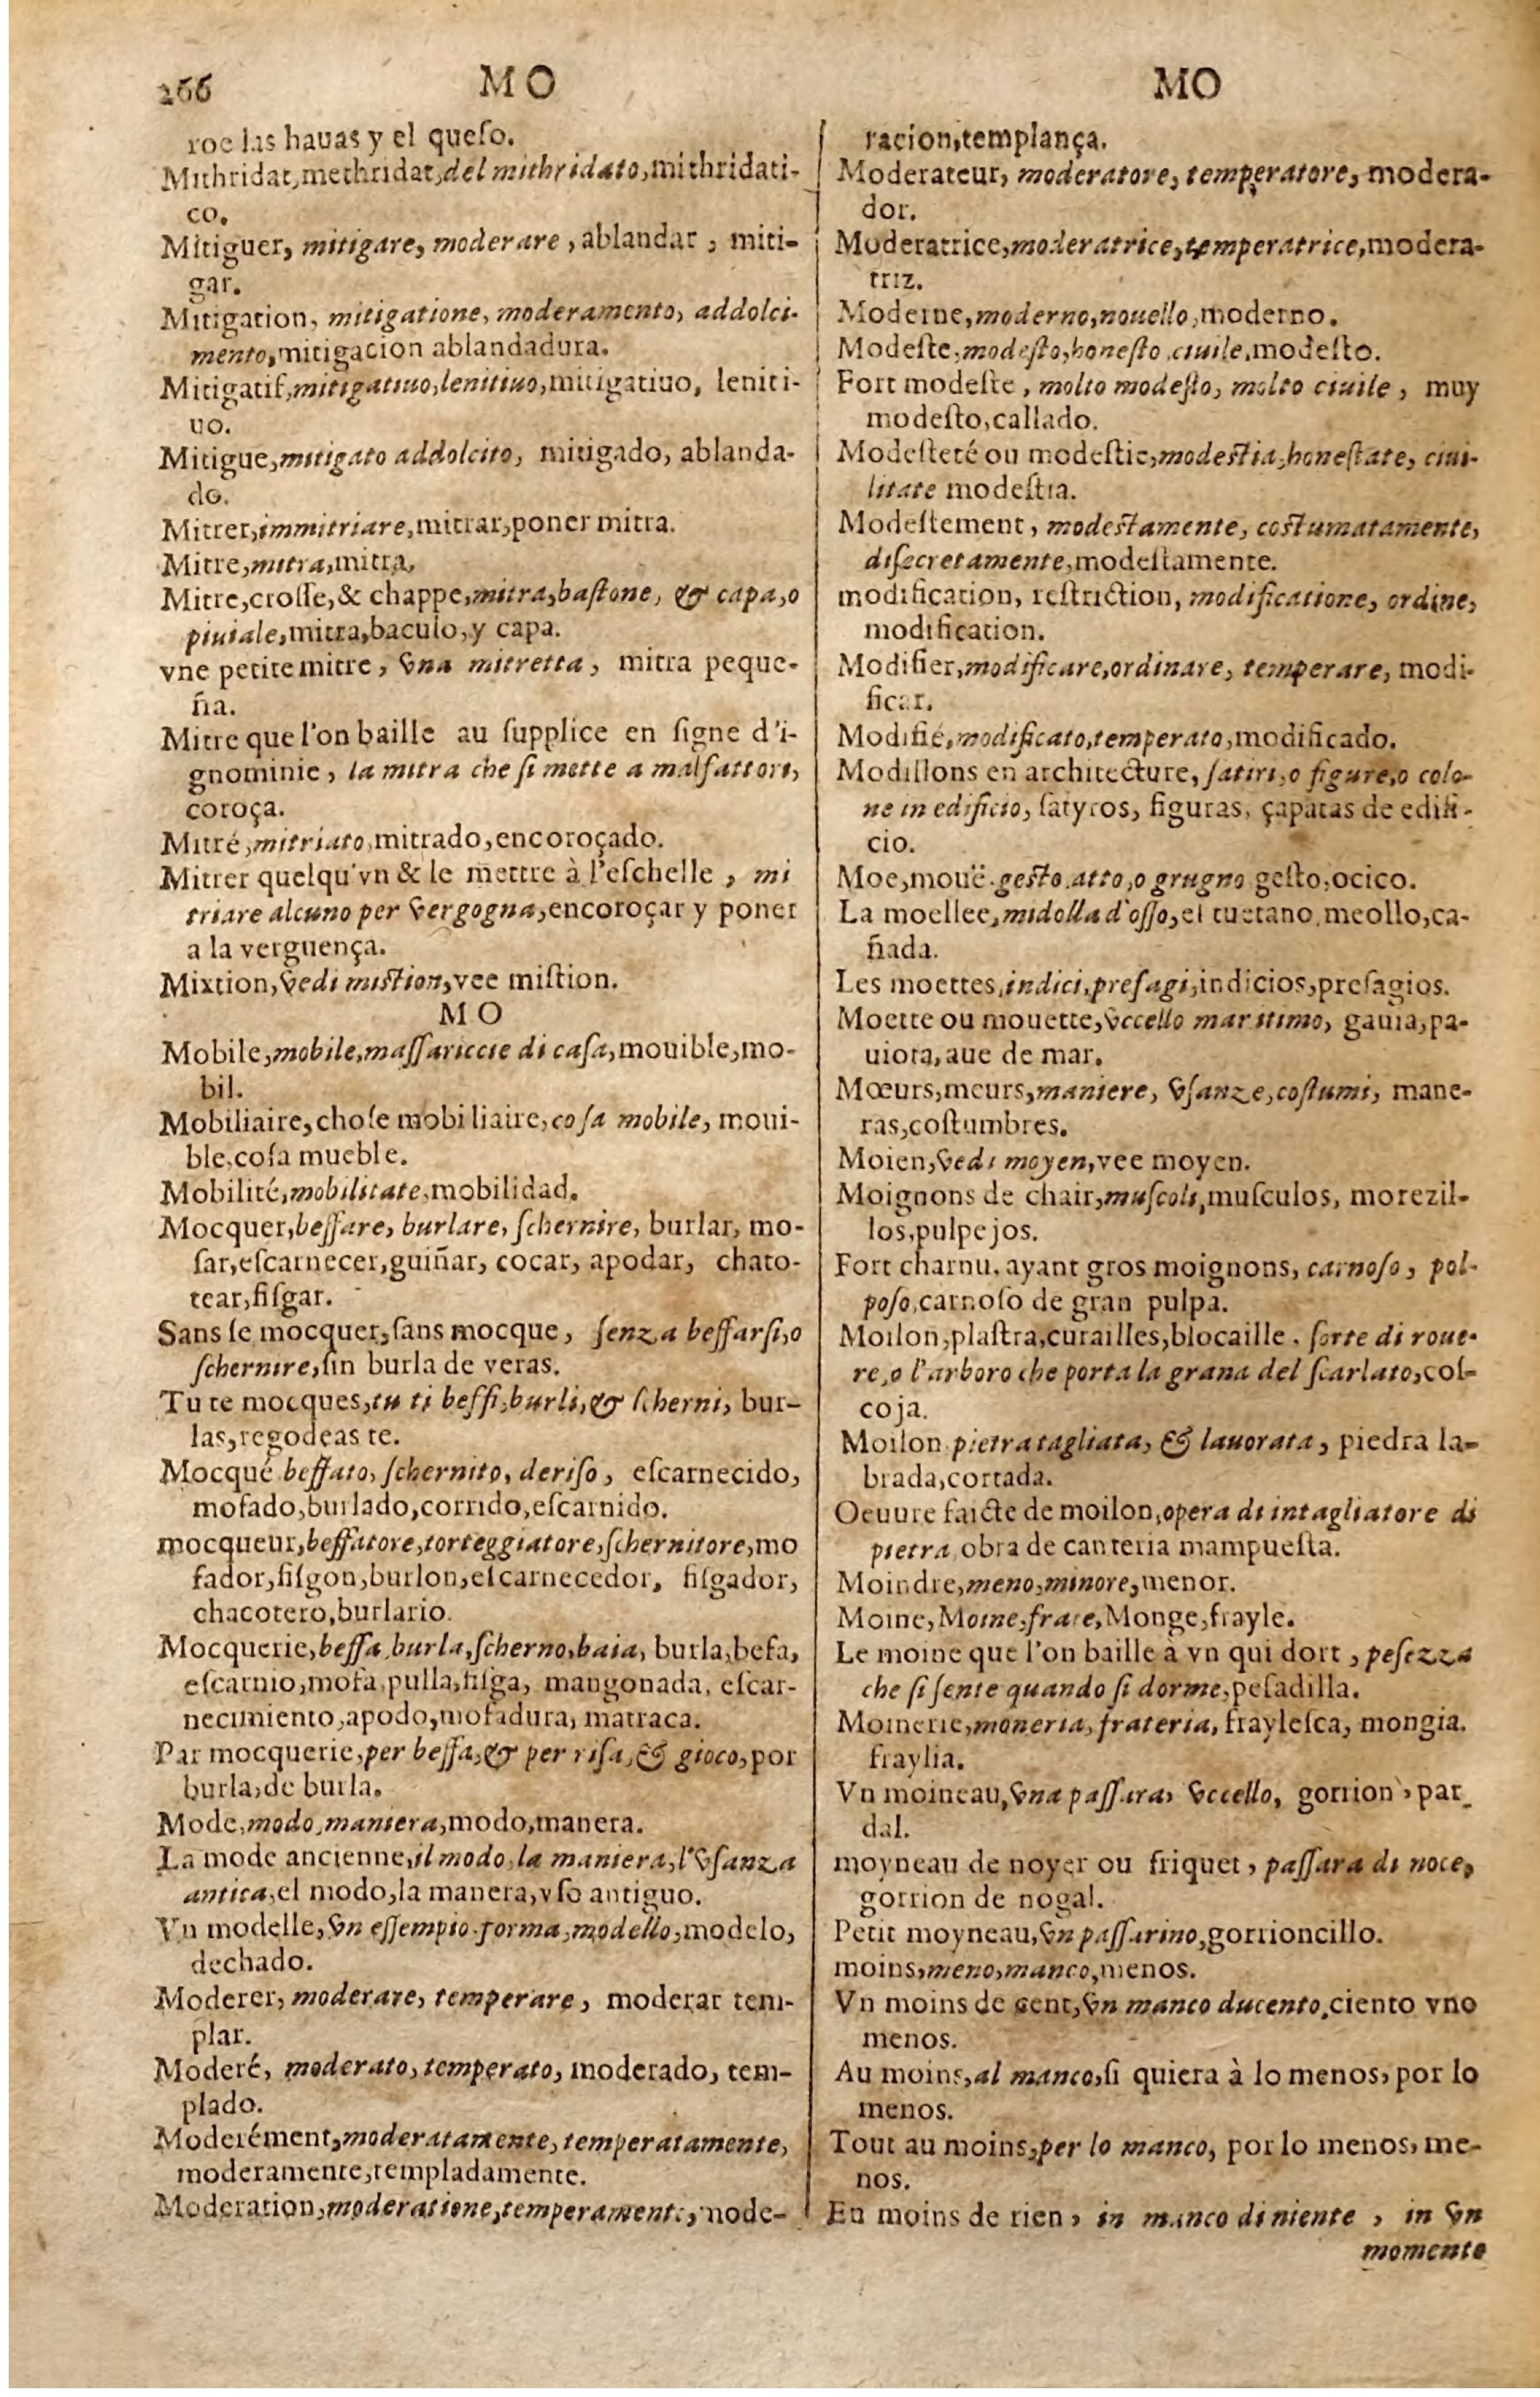 266 MO
roe las hauas y el queſo.
Mithridat, methridat, del mithridato, mithridati-
co.
Mitiguer, mitigare, moderare, ablandar, miti-
gar.
Mitigation, mitigatione, moderamento, addolci-
mento, mitigacion ablandadura.
Mitigatif, mitigatiuo, lenitiuo, mitigatiuo, leniti-
uo.
Mitigue, mitigato addolcito, mitigado, ablanda-
do.
Mitrer, immitriare, mitrar, poner mitra.
Mitre, mitra, mitra.
Mitre, croſſe, & chappe, mitra, baſtone, & capa, o
piuiale, mitra, baculo, y capa.
vne petite mitre, vna mitretta, mitra peque-
ña.
Mitre que l'on baille au ſupplice en ſigne d'i-
gnominie, la mitra che ſi mette a malfattori,
coroça.
Mitré, mitriato, mitrado, encoroçado.
Mitrer quelqu'vn & le mettre à l'eſchelle, mi
triare alcuno per vergogna, encoroçar y poner
a la verguença.
Mixtion, vedi miſtion, vee miſtion.
MO
Mobile, mobile, maſſariccie di caſa, mouible, mo-
bil.
Mobiliaire, choſe mobiliaire, coſa mobile, moui-
ble, coſa mueble.
Mobilité, mobilitate, mobilidad.
Mocquer, beffare, burlare, ſchernire, burlar, mo-
far, eſcarnecer, guiñar, cocar, apodar, chato-
tear, fiſgar.
Sans ſe mocquer, ſans mocque, ſenza beffarſi, o
ſchernire, ſin burla de veras.
Tu te mocques, tu ti beffi, burli, & ſcherni, bur-
las, regodeas te.
Mocqué beffato, ſchernito, deriſo, eſcarnecido,
mofado, burlado, corrido, eſcarnido.
mocqueur, beffatore, torteggiatore, ſchernitore, mo
fador, fiſgon, burlon, eſcarnecedor, fiſgador,
chacotero, burlario.
Mocquerie, beffa, burla, ſcherno, baia, burla, befa,
eſcarnio, mofa, pulla, fiſga, mangonada, eſcar-
necimiento, apodo, mofadura, matraca.
Par mocquerie, per beffa, & per riſa, & gioco, por
burla, de burla.
Mode, modo, maniera, modo, manera.
La mode ancienne, il modo, la maniera, l'vſanza
antica, el modo, la manera, vſo antiguo.
Vn modelle, vn eſſempio forma, modello, modelo,
dechado.
Moderer, moderare, temperare, moderar tem-
plar.
Moderé, moderato, temperato, moderado, tem-
plado.
Moderément, moderatamente, temperatamente,
moderamente, templadamente.
Moderation, moderatione, temperamento, mode-
MO
racion, templança.
Moderateur, moderatore, temperatore, modera-
dor.
Moderatrice, moderatrice, temperatrice, modera-
triz.
Moderne, moderno, nouello, moderno.
Modeſte, modeſto, honeſto, ciuile, modeſto.
Fort modeſte, molto modeſto, molto ciuile, muy
modeſto, callado.
Modeſteté ou modeſtie, modeſtia, honeſtate, ciui-
litate modeſtia.
Modeſtement, modeſtamente, coſtumatamente,
diſecretamente, modeſtamente.
modification, reſtriction, modificatione, ordine,
modification.
Modifier, modificare, ordinare, temperare, modi-
ficar.
Modifié, modificato, temperato, modificado.
Modillons en architecture, ſatiri, o figure, o colo-
ne in edificio, ſatyros, figuras, çapatas de edifi-
cio.
Moe, mouë. geſto. atto, o grugno geſto, ocico.
La moellee, midolla d'oſſo, el tuetano, meollo, ca-
ñada.
Les moettes, indici, preſagi, indicios, preſagios.
Moette ou mouette, vccello maritimo, gauia, pa-
uiota, aue de mar.
Mœurs, meurs, maniere, vſanze, coſtumi, mane-
ras, coſtumbres.
Moien, vedi moyen, vee moyen.
Moignons de chair, muſcoli, muſculos, morezil-
los, pulpejos.
Fort charnu, ayant gros moignons, carnoſo, pol-
poſo, carnoſo de gran pulpa.
Moilon, plaſtra, curailles, blocaille. ſorte di roue-
re, o l'arboro che porta la grana del ſcarlato, coſ-
coja.
Moilon pietra tagliata, & lauorata, piedra la-
brada, cortada.
Oeuure faicte de moilon, opera di intagliatore di
pietra, obra de canteria mampueſta.
Moindre, meno, minore, menor.
Moine, Moine, frate, Monge, frayle.
Le moine que l'on baille à vn qui dort, peſezza
che ſi ſente quando ſi dorme, peſadilla.
Moinerie, moneria, frateria, frayleſca, mongia.
fraylia.
Vn moineau, vna paſſara, vccello, gorrion, par_
dal.
moyneau de noyer ou friquet, paſſara di noce,
gorrion de nogal.
Petit moyneau, vn paſſarino, gorrioncillo.
moins, meno, manco, menos.
Vn moins de cent, vn manco ducento, ciento vno
menos.
Au moins, al manco, ſi quiera à lo menos, por lo
menos.
Tout au moins, per lo manco, por lo menos, me-
nos.
En moins de rien, in manco di niente, in vn
momento